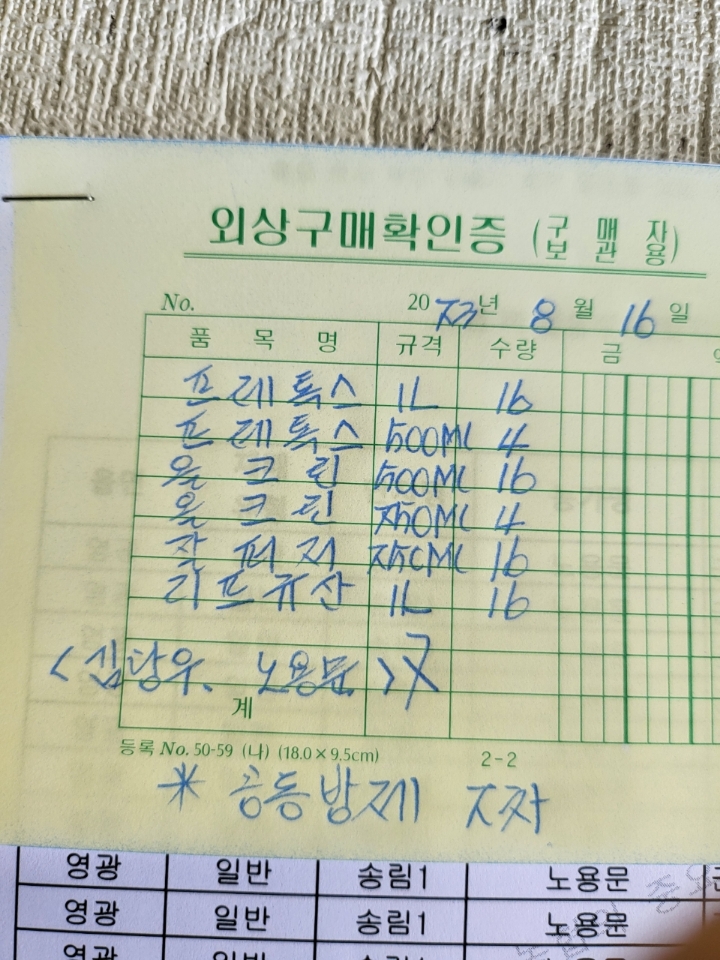 외상구매확인증 (구매자보관용)
No. 2023년 8월 16일
품목명 규격 수량 금
프레톡스 1L 16
프레톡스 500ML 4
올크린 500ML 16
올크린 250ML 4
잘퍼져 250ML 16
리프규산 1L 16
<심당우. 노용문>
계
등록 No. 50-59 (나) (18.0×9.5cm) 2-2
* 공동방제 2차
영광 일반 송림1 노용문
영광 일반 송림1 노용문
영광 일반 송림1 노용문